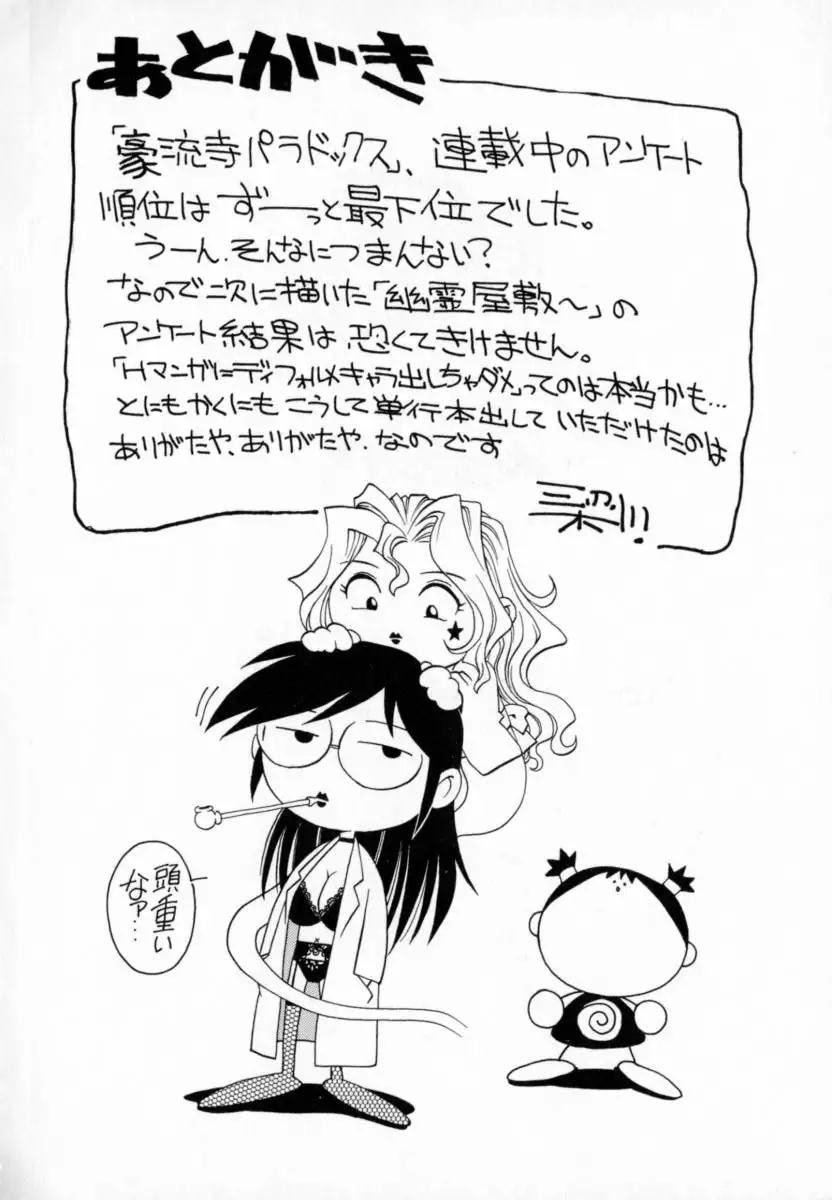 あとがき
「豪流寺パラドックス」、連載中のアンケート
順位は ずーーっと最下位でした。
うーん、そんなにつまんない?
なので二次に描いた「幽霊屋敷〜」の
アンケート結果は 恐くてきけません。
「Hマンガにディフォルメキャラ出しちゃダメ」ってのは本当かも…
とにもかくにも こうして 単行本出して いただけたのは
ありがたや、ありがたや、なのです
頭重い
なァ…